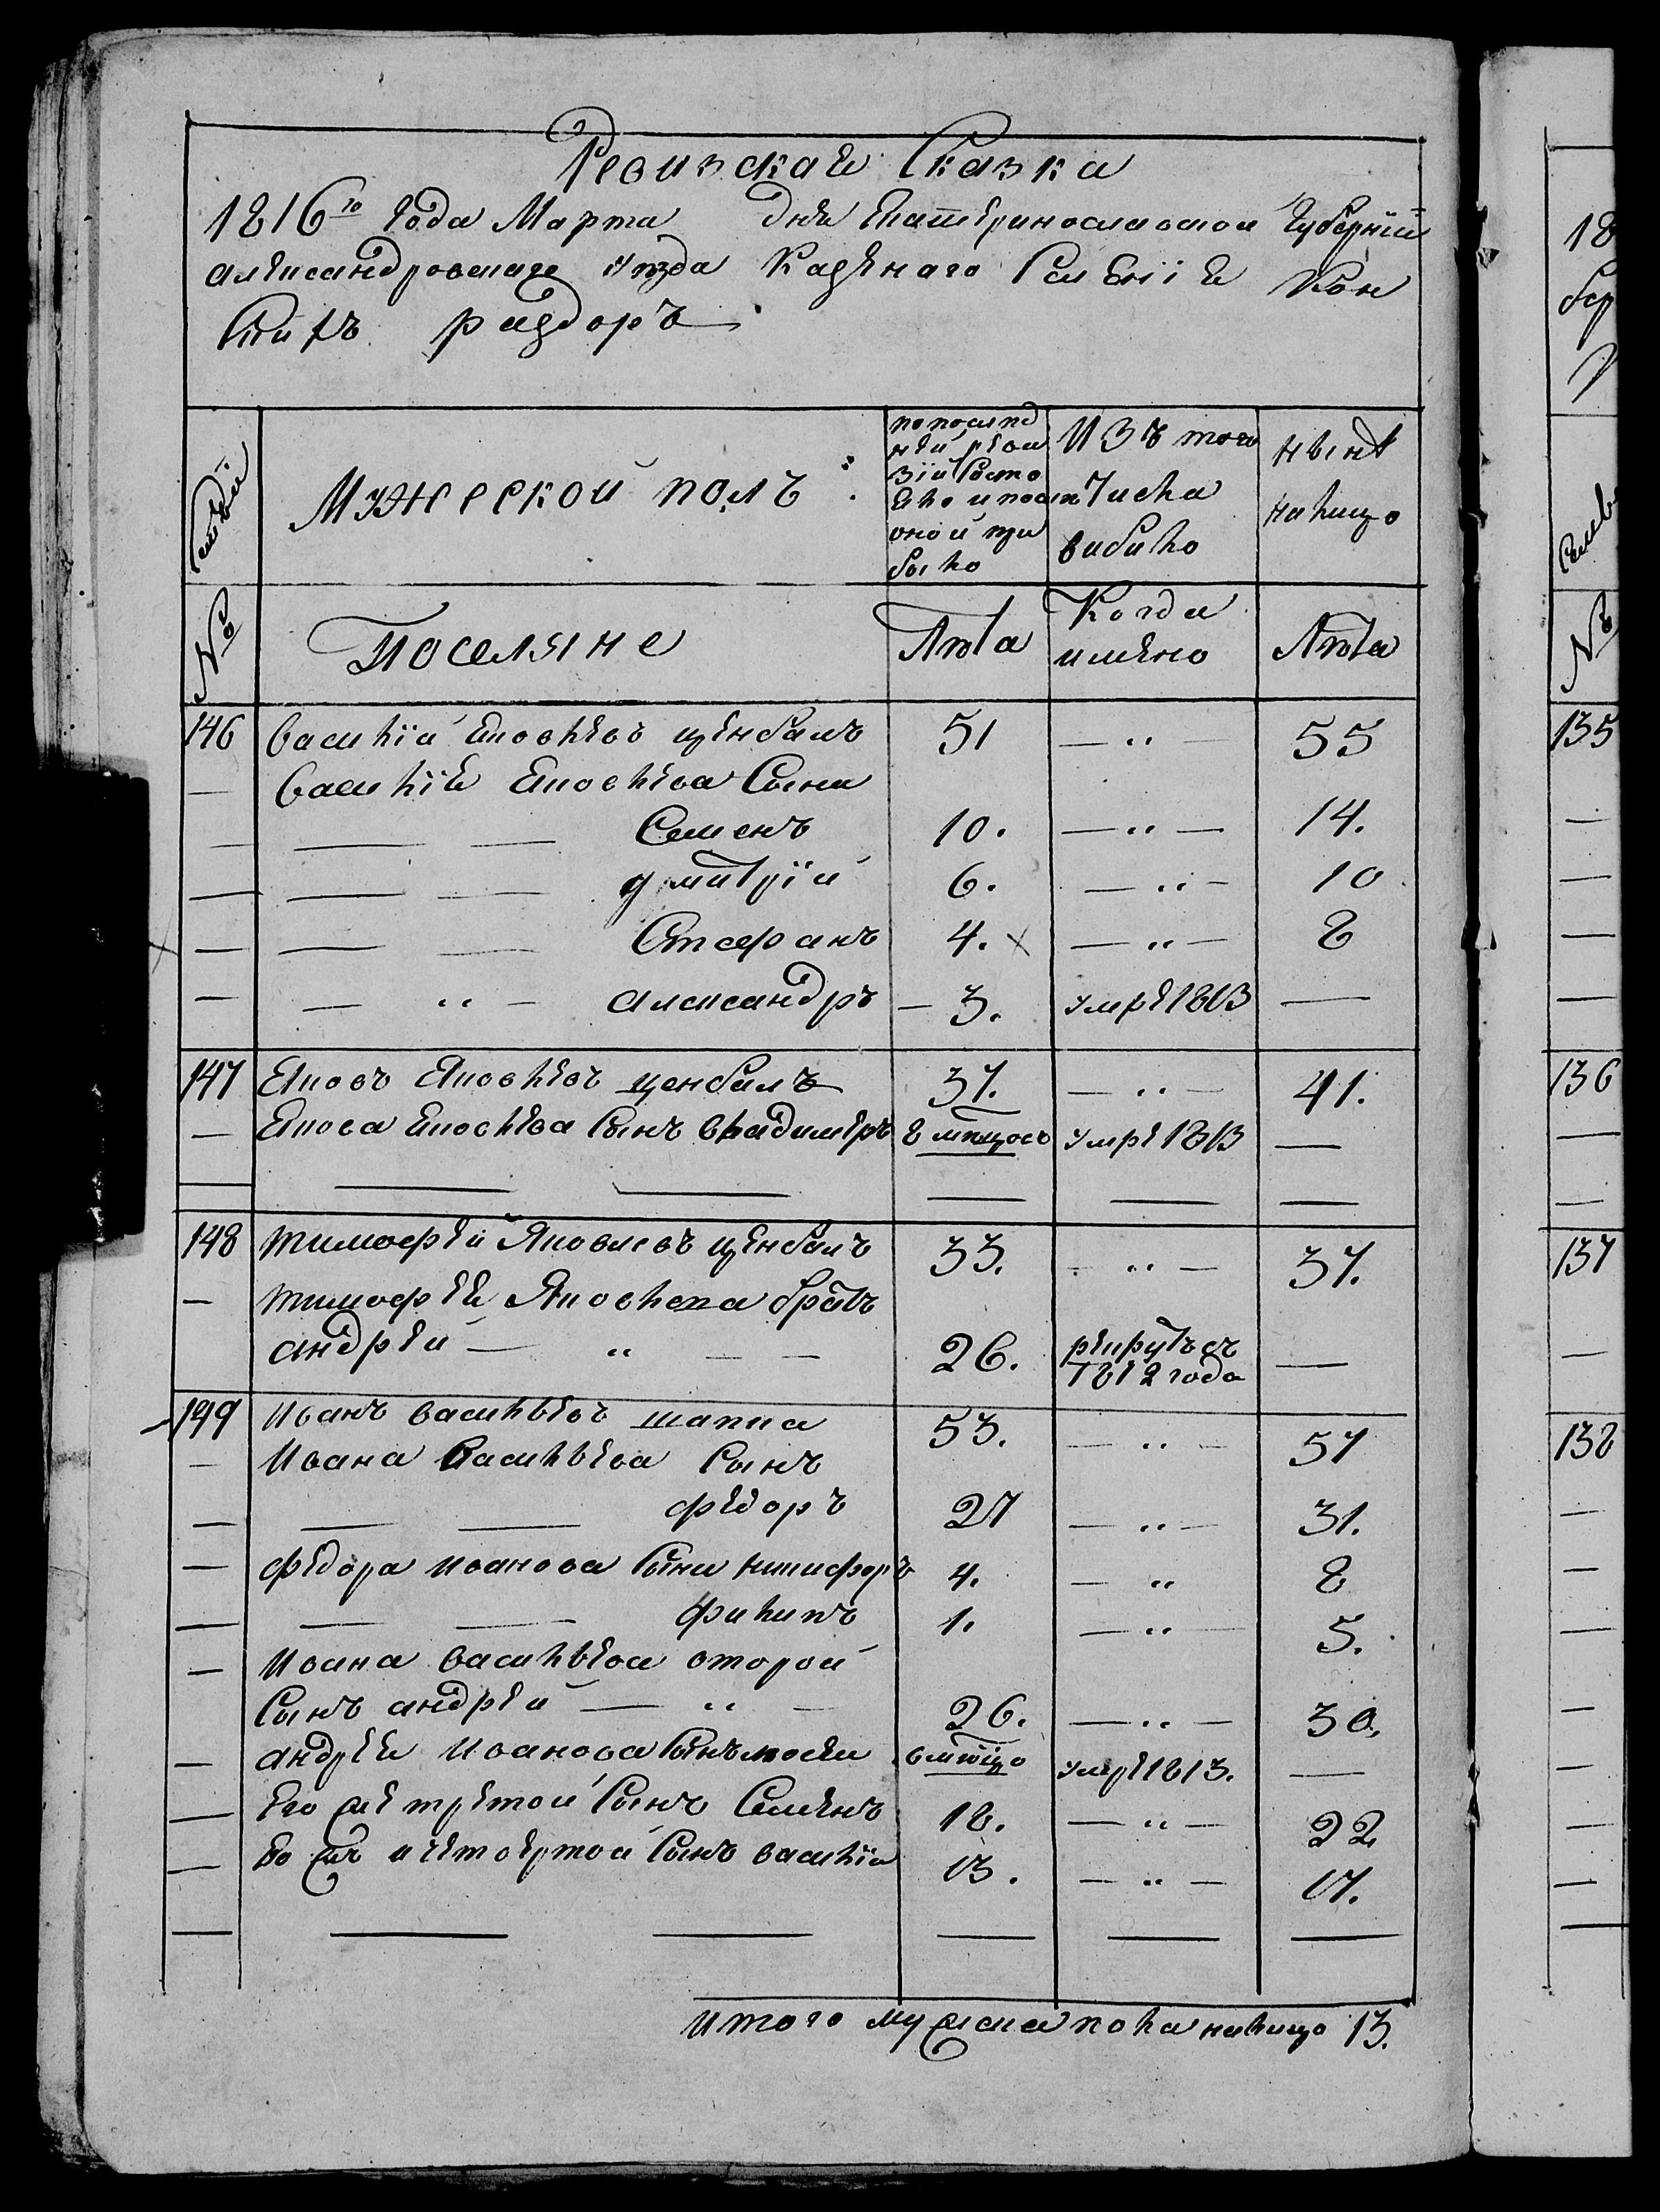 Ревизская Сказка
1816го года Марта дня Екатеринославской губернии
александровскаго уезда Казенаго Селения Кон
скихъ раздоръ
семей
Мужеской полъ
по послед
ней реви
зіи состо
яло и после
оной при
было
Изъ того
числа
вибило
ныне
налицо
№
Поселяне
Лета
Когда
имено
Лета
146 василій яковлевъ ценбалъ 51 — „ — 55
— василія яковлева сыни
— — — Семенъ 10. — „ — 14.
— — — дмитрій 6. — „ — 10
— — — Стефанъ 4. х — „ — 8
— — „ — александръ — 3. умре 1813 —
147 яковъ яковлевъ ценбалъ 37. — „ — 41.
— якова яковлева сынъ владимеръ 8 месяцовъ умре 1813 —
148 тимофей Яковлевъ ценбалъ 33. — „ — 37.
— тимофея Яковлева братъ
андрей — „ — — 26. рекрутъ съ 1812 года —
149 Иванъ васильевъ шапка 53. — „ — 57
— Ивана васильева сынъ
— — — федоръ 27 — „ — 31.
— федора иванова сыни никифоръ 4. — „ 8
— — — филипъ 1. — „ — 5.
— Ивана васильева второй
сынъ андрей — „ — 26. — „ — 30.
— андрея иванова сынъ умре 1813. —
— его же третой сынъ Семенъ 18. — „ — 22
— его же четвертой сынъ василій 13. — „ — 17.
итого мужеска пола налицо 13.
18
135
136
137
138
№